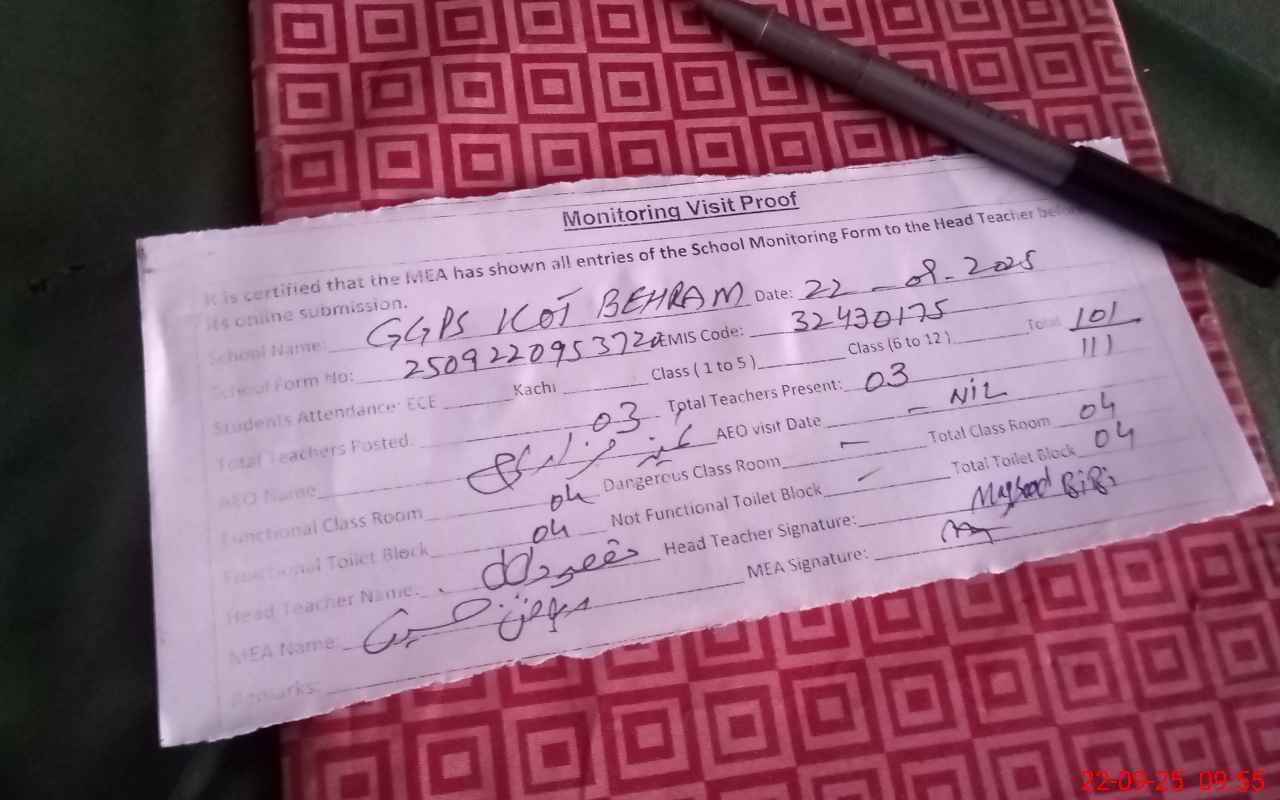 Monitoring Visit Proof
It is certified that the MEA has shown all entries of the School Monitoring Form to the Head Teacher
its online submission.
School Name: GGPS KOT BEHRAM Date: 22 - 09 - 2025
School Form No: 250922095372 EMIS Code: 32430175
Students Attendance: ECE Kachi Class ( 1 to 5 ) Class (6 to 12 ) Total 101
111
Total Teachers Posted: 03 Total Teachers Present: 03
AEO Name AEO visit Date - Nil
Functional Class Room 04 Dangerous Class Room - Total Class Room 04
Functional Toilet Block 04 Not Functional Toilet Block - Total Toilet Block 04
Head Teacher Name: Head Teacher Signature: Maqsood BiBi
MEA Name: حسین MEA Signature:
Remarks:
22-09-25 09:55